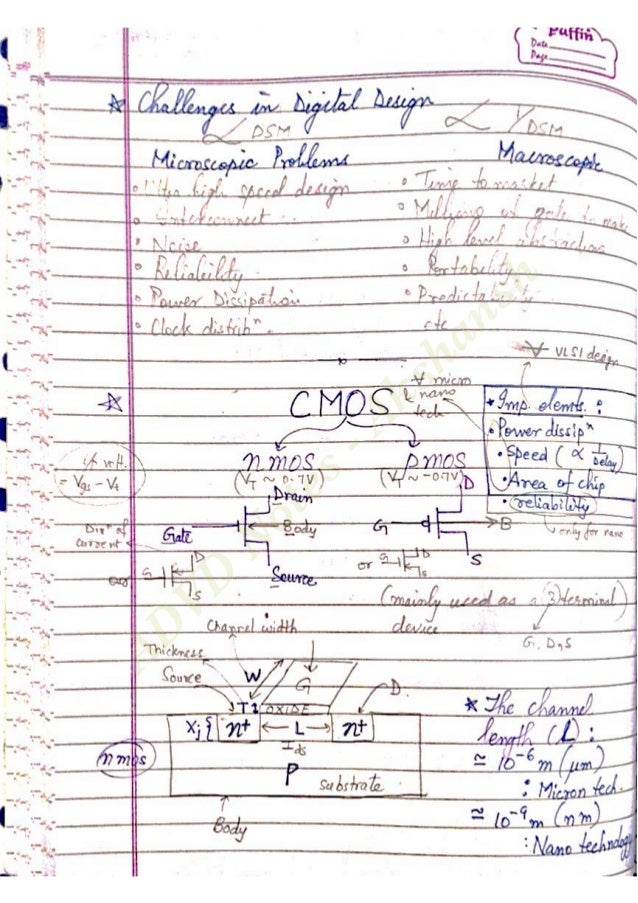 Puffin
Date
Page
* Challenges in Digital Design
∝ DSM
∝ 1/DSM
Microscopic Problems
• Ultra high speed design
• Interconnect
• Noise
• Reliability
• Power Dissipation
• Clock distribⁿ.
Macroscopic
• Time to market
• Millions of gate to make
• High level abstractions
• Portability
• Predictability
etc
∀ VLSI design
* CMOS
∀ micro
& nano
tech
* Imp. elemts. :
• Power dissipⁿ
• Speed (∝ 1/Delay)
• Area of chip
• reliability
only for nano
nmos
(VT ~ 0.7V)
pmos
(VT ~ -0.7V)
volt.
= Vgs - Vt
Drain
Gate
Body
Source
Dirⁿ of
current
G
D
S
or
D
G
B
S
or G
D
S
(mainly used as a 3 terminal)
device
G, D, S
Channel width
Thickness
Source
W
G
D
OXIDE
Xj {
n+
L
n+
Ids
nmos
P
substrate
Body
* The channel
length (L) :
≃ 10⁻⁶ m (μm)
: Micron tech.
≃ 10⁻⁹ m (nm)
: Nano technology
ADVD Notes - Akshansh